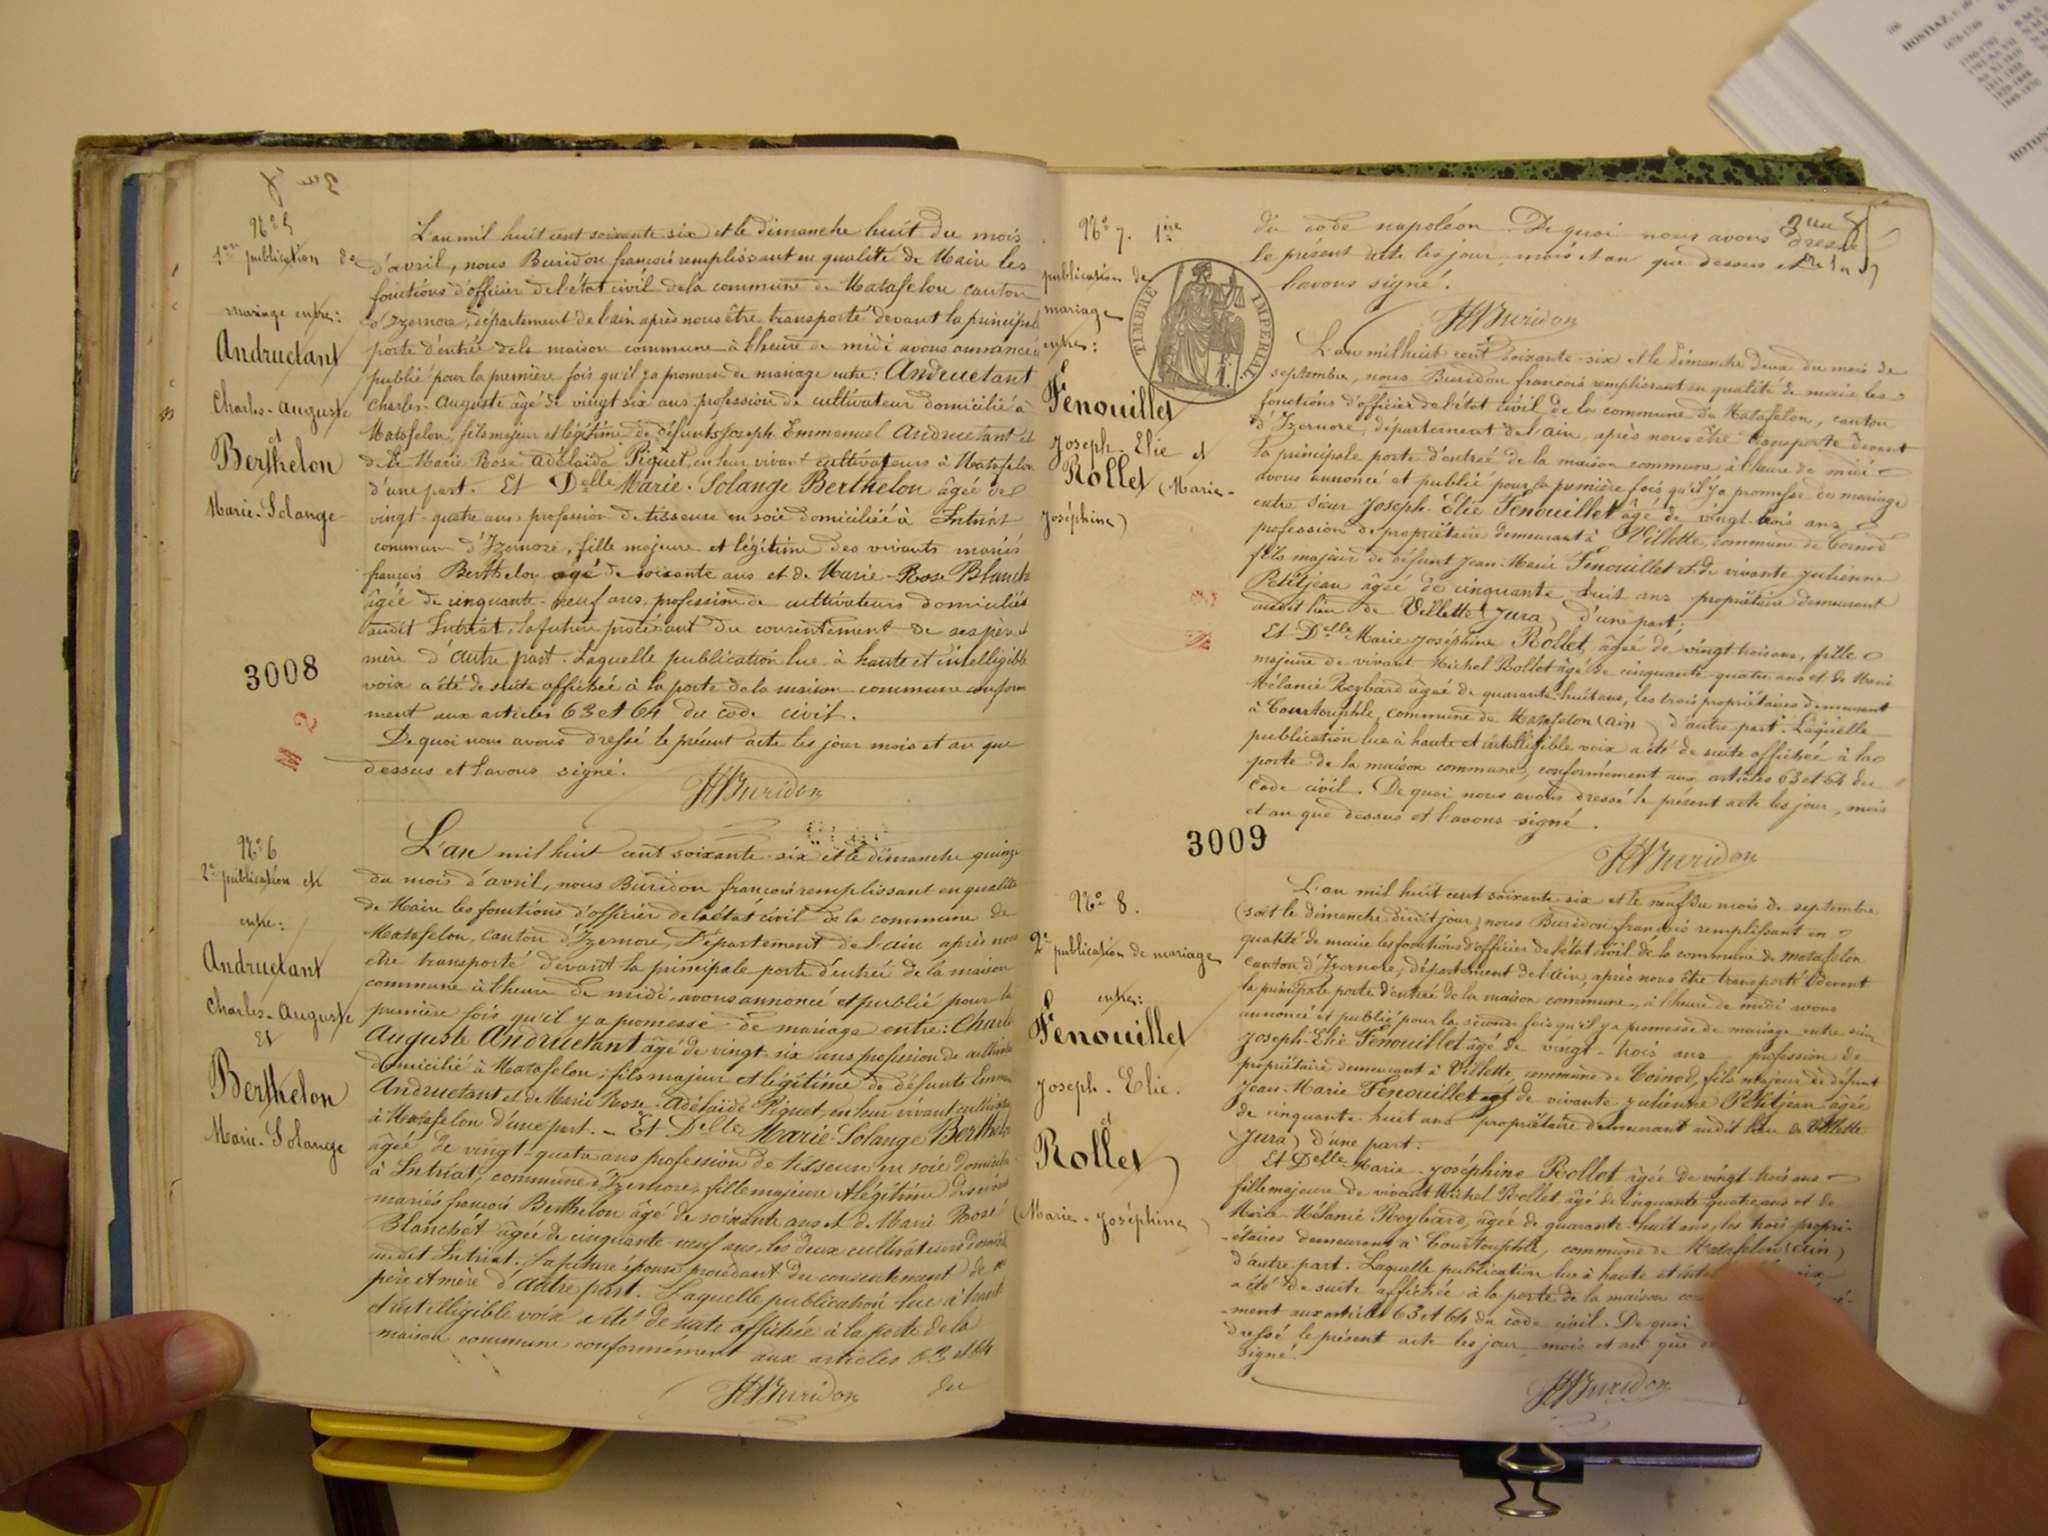 N° 5
1ère publication de
mariage entre:
Andructant
Charles-Auguste
et
Berthelon
Marie-Solange
3008
L'an mil huit cent soixante six et le dimanche huit du mois
d'avril, nous Buridon françois remplissant en qualité de Maire les
fonctions d'officier de l'état civil de la commune de Matafelon canton
d'Izernore, département de l'ain après nous être transporté devant la principale
porte d'entrée de la maison commune à l'heure de midi avons annoncé et
publié pour la première fois qu'il y a promesse de mariage entre: Andructant
Charles-Auguste âgé de vingt six ans profession de cultivateur domicilié à
Matafelon, fils majeur et légitime de défunts Joseph Emmanuel Andructant et
de Marie Rose Adélaïde Piquet, en leur vivant cultivateurs à Matafelon
d'une part. Et Delle Marie-Solange Berthelon âgée de
vingt-quatre ans profession de tisseuse en soie domiciliée à Intriat
commune d'Izernore, fille majeure et légitime des vivants mariés
françois Berthelon âgé de soixante ans et de Marie-Rose Blanch
âgée de cinquante-neuf ans profession de cultivateurs domiciliés
audit Intriat, la future procédant du consentement de ses père et
mère d'autre part. Laquelle publication lue à haute et intelligible
voix a été de suite affichée à la porte de la maison commune conform
ment aux articles 63 et 64 du code civil.
De quoi nous avons dressé le présent acte les jour mois et an que
dessus et l'avons signé.
Buridon
N° 6
2e publication de
entre:
Andructant
Charles-Auguste
Et
Berthelon
Marie-Solange
L'an mil huit cent soixante-six et le dimanche quinze
du mois d'avril, nous Buridon françois remplissant en qualité
de Maire les fonctions d'officier de l'état civil de la commune de
Matafelon, canton d'Izernore, Département de l'ain après nous
être transporté devant la principale porte d'entrée de la maison
commune à l'heure de midi avons annoncé et publié pour la
première fois qu'il y a promesse de mariage entre: Charles
Auguste Andructant âgé de vingt-six ans profession de cultivateur
domicilié à Matafelon, fils majeur et légitime de défunts Emman
Andructant et de Marie Rose-Adélaïde Piquet, en leur vivant cultivateurs
à Matafelon d'une part. - Et Delle Marie-Solange Berthelon
âgée de vingt-quatre ans profession de tisseuse en soie domiciliée
à Intriat, commune d'Izernore, fille majeure et légitime des vivants
mariés françois Berthelon âgé de soixante ans et de Marie Rose
Blanchet âgée de cinquante-neuf ans, les deux cultivateurs domiciliés
audit Intriat. La future épouse procédant du consentement de ses
père et mère d'autre part. Laquelle publication lue à haute
et intelligible voix a été de suite affichée à la porte de la
maison commune conformément aux articles 63 et 64
Buridon
du
du code napoléon. De quoi nous avons dressé
le présent acte les jour, mois et an que dessus et
l'avons signé.
Buridon
TIMBRE IMPERIAL
N° 7. 1ère
publication de
mariage
entre:
Fenouillet
Joseph-Elie et
Rollet (Marie-
Joséphine)
L'an mil huit cent soixante-six et le dimanche deux du mois de
septembre, nous Buridon françois remplissant en qualité de maire les
fonctions d'officier de l'état civil de la commune de Matafelon, canton
d'Izernore, département de l'ain, après nous être transporté devant
la principale porte d'entrée de la maison commune à l'heure de midi
avons annoncé et publié pour la première fois qu'il y a promesse de mariage
entre sieur Joseph-Elie Fenouillet âgé de vingt-trois ans
profession de propriétaire demeurant à Villette, commune de Cornod
fils majeur de défunt Jean-Marie Fenouillet et de vivante Julienne
Petitjean âgée de cinquante-huit ans propriétaire demeurant
audit lieu de Villette (Jura) d'une part;
Et Delle Marie Joséphine Rollet, âgée de vingt trois ans, fille
majeure de vivant Michel Rollet âgé de cinquante-quatre ans et de Marie
Mélanie Reybard âgée de quarante-huit ans, les trois propriétaires demeurant
à Courtouphle, commune de Matafelon (ain) d'autre part. Laquelle
publication lue à haute et intelligible voix a été de suite affichée à la
porte de la maison commune, conformément aux articles 63 et 64 du
code civil. De quoi nous avons dressé le présent acte les jour, mois
et an que dessus et l'avons signé.
3009
Buridon
N° 8.
2e publication de mariage
entre:
Fenouillet
Joseph-Elie.
et
Rollet
(Marie-Joséphine)
L'an mil huit cent soixante-six et le neuf du mois de septembre
(soit le dimanche dudit jour), nous Buridon françois remplissant en
qualité de maire les fonctions d'officier de l'état civil de la commune de matafelon
canton d'Izernore, département de l'ain, après nous être transporté devant
la principale porte d'entrée de la maison commune, à l'heure de midi avons
annoncé et publié pour la seconde fois qu'il y a promesse de mariage entre sieur
Joseph-Elie Fenouillet âgé de vingt-trois ans, profession de
propriétaire demeurant à Villette commune de Cornod, fils majeur de défunt
Jean-Marie Fenouillet et de vivante Julienne Petitjean âgée
de cinquante-huit ans propriétaire demeurant audit lieu de Villette
(Jura) d'une part:
Et Delle Marie-Joséphine Rollet âgée de vingt trois ans
fille majeure de vivant Michel Rollet âgé de cinquante-quatre ans et de
Marie-Mélanie Reybard, âgée de quarante-huit ans, les trois propri-
-étaires demeurant à Courtouphle, commune de Matafelon (ain)
d'autre part. Laquelle publication lue à haute et
a été de suite affichée à la porte de la maison
-ment aux articles 63 et 64 du code civil. De quoi
dressé le présent acte les jour, mois et an que
signé.
Buridon
HOSTIAZ,